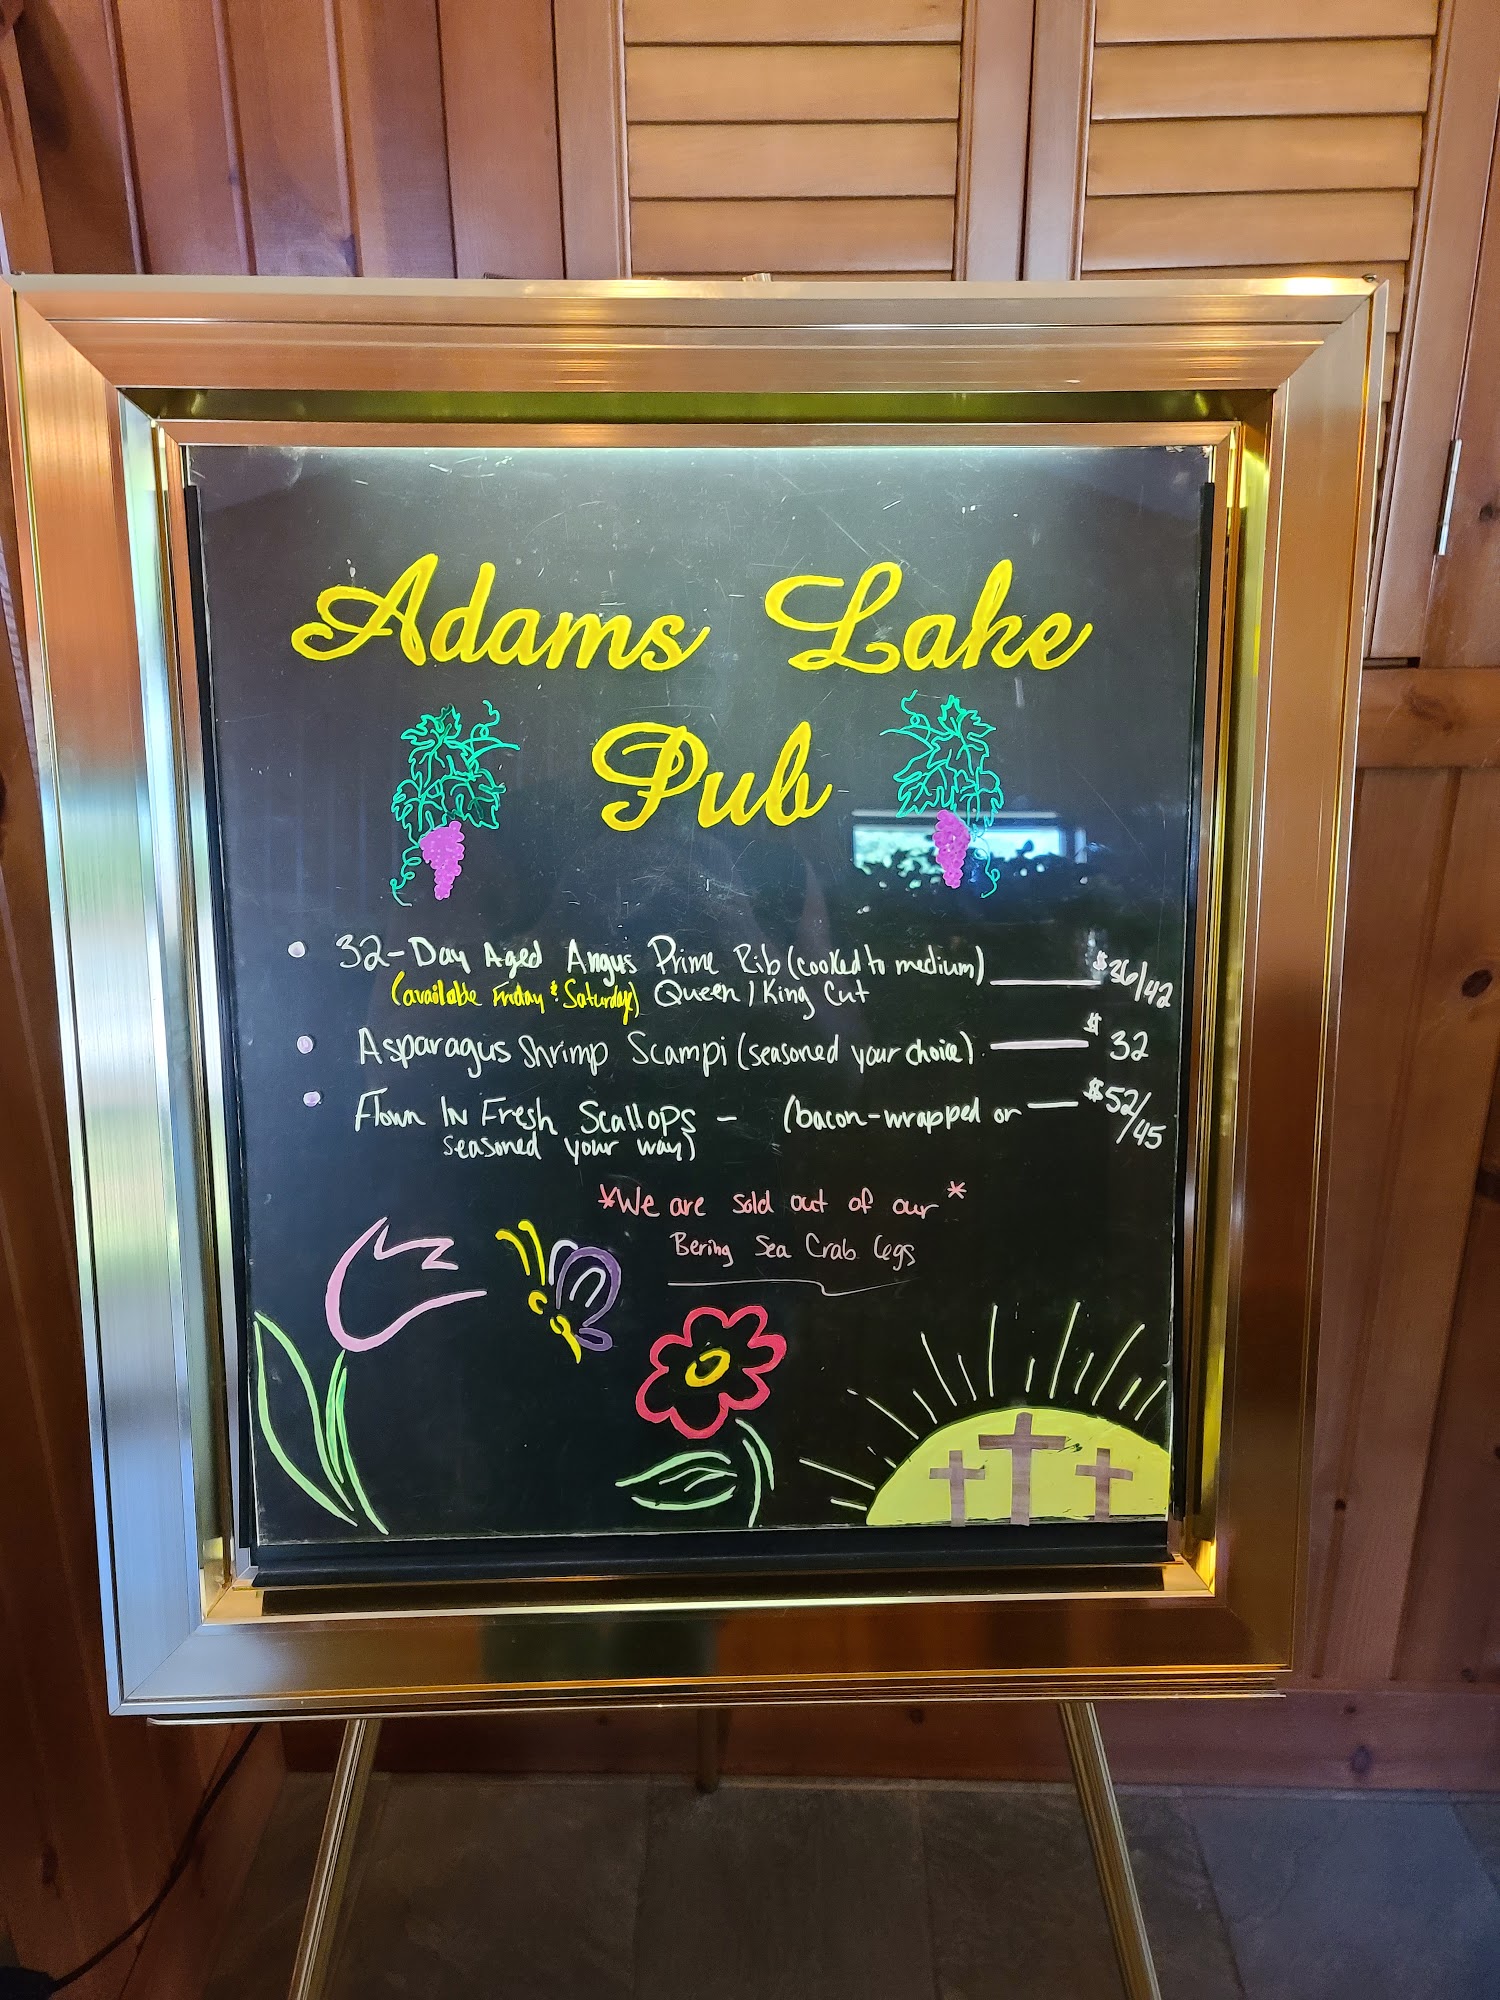 Adams Lake
Pub
32-Day Aged Angus Prime Rib (cooked to medium) $36/42
(available Friday & Saturday) Queen / King Cut
Asparagus Shrimp Scampi (seasoned your choice) $32
Flown In Fresh Scallops - (bacon-wrapped or $52/45
seasoned your way)
*We are sold out of our*
Bering Sea Crab Legs